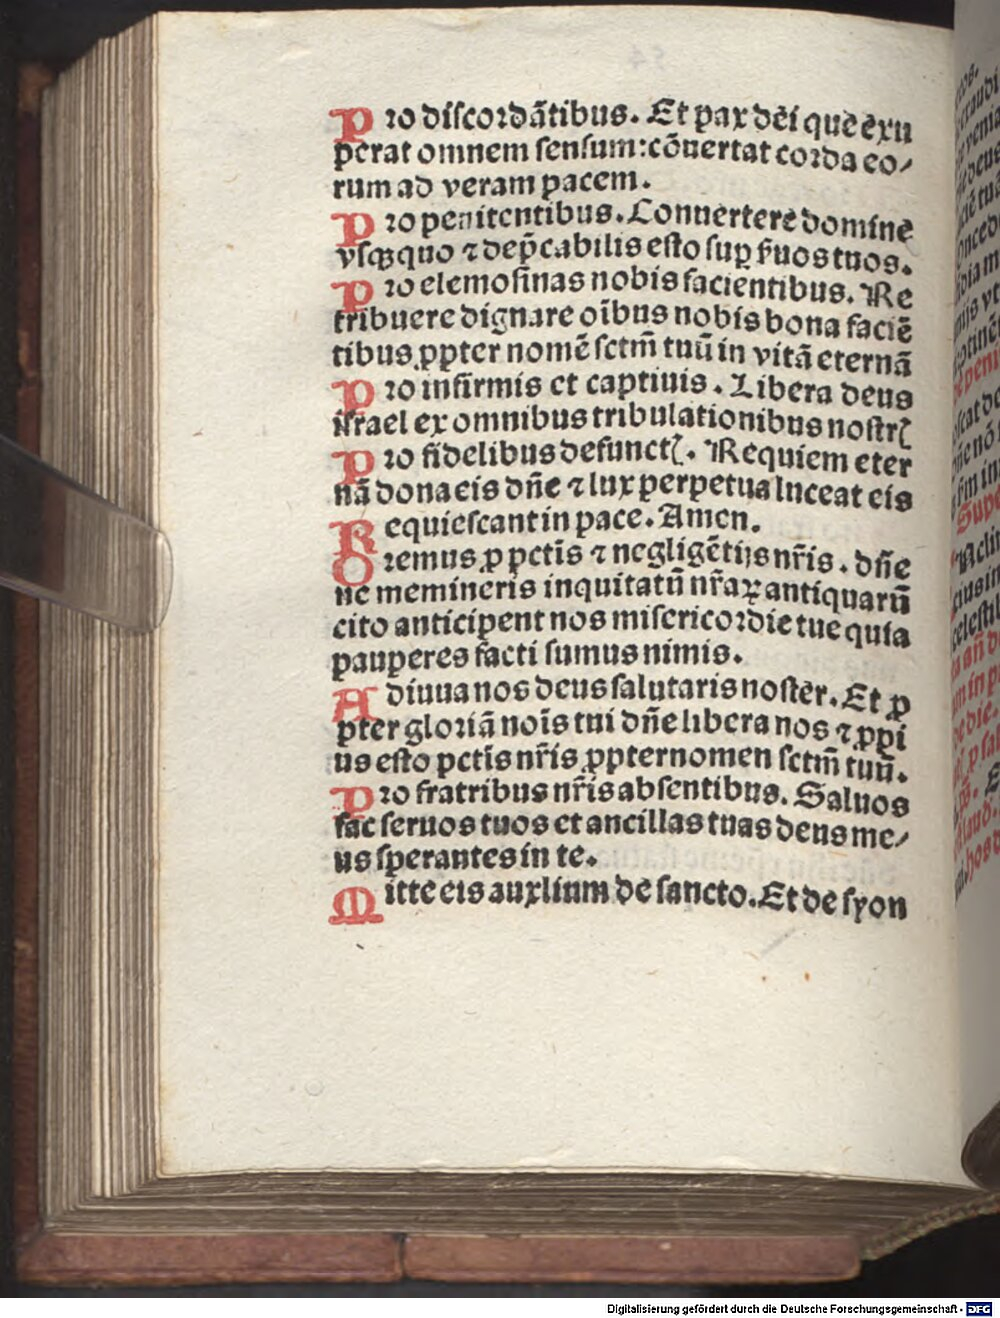 Pro discordãtibus. Et pax dei que exu
perat omnem sensum: cõuertat corda eo/
rum ad veram pacem.
Pro penitentibus. Conuertere domine
vsqꝫquo ⁊ dep̃cabilis esto suꝑ s̃uos tuos.
Pro elemosinas nobis facientibus. Re
tribuere dignare oĩbus nobis bona faciẽ
tibus ꝓpter nomẽ sctm̃ tuũ in vitã eternã
Pro infirmis et captiuis. Libera deus
israel ex omnibus tribulationibus nostrꝭ
Pro fidelibus defunctꝭ. Requiem eter
nã dona eis dñe ⁊ lux perpetua luceat eis
Requiescant in pace. Amen.
Oremus ꝓ pctĩs ⁊ negligẽtijs nr̃is. dñe
ne memineris inquitatũ nr̃aꝝ antiquarũ
cito anticipent nos misericordie tue quia
pauperes facti sumus nimis.
Adiuua nos deus salutaris noster. Et ꝓ
pter gloriã noĩs tui dñe libera nos ⁊ ꝓpi
us esto pctĩs nr̃is ꝓpter nomen sctm̃ tuũ.
Pro fratribus nr̃is absentibus. Saluos
fac seruos tuos et ancillas tuas deus me/
us sperantes in te.
Mitte eis auxlium de sancto. Et de syon
Digitalisierung gefördert durch die Deutsche Forschungsgemeinschaft - DFG